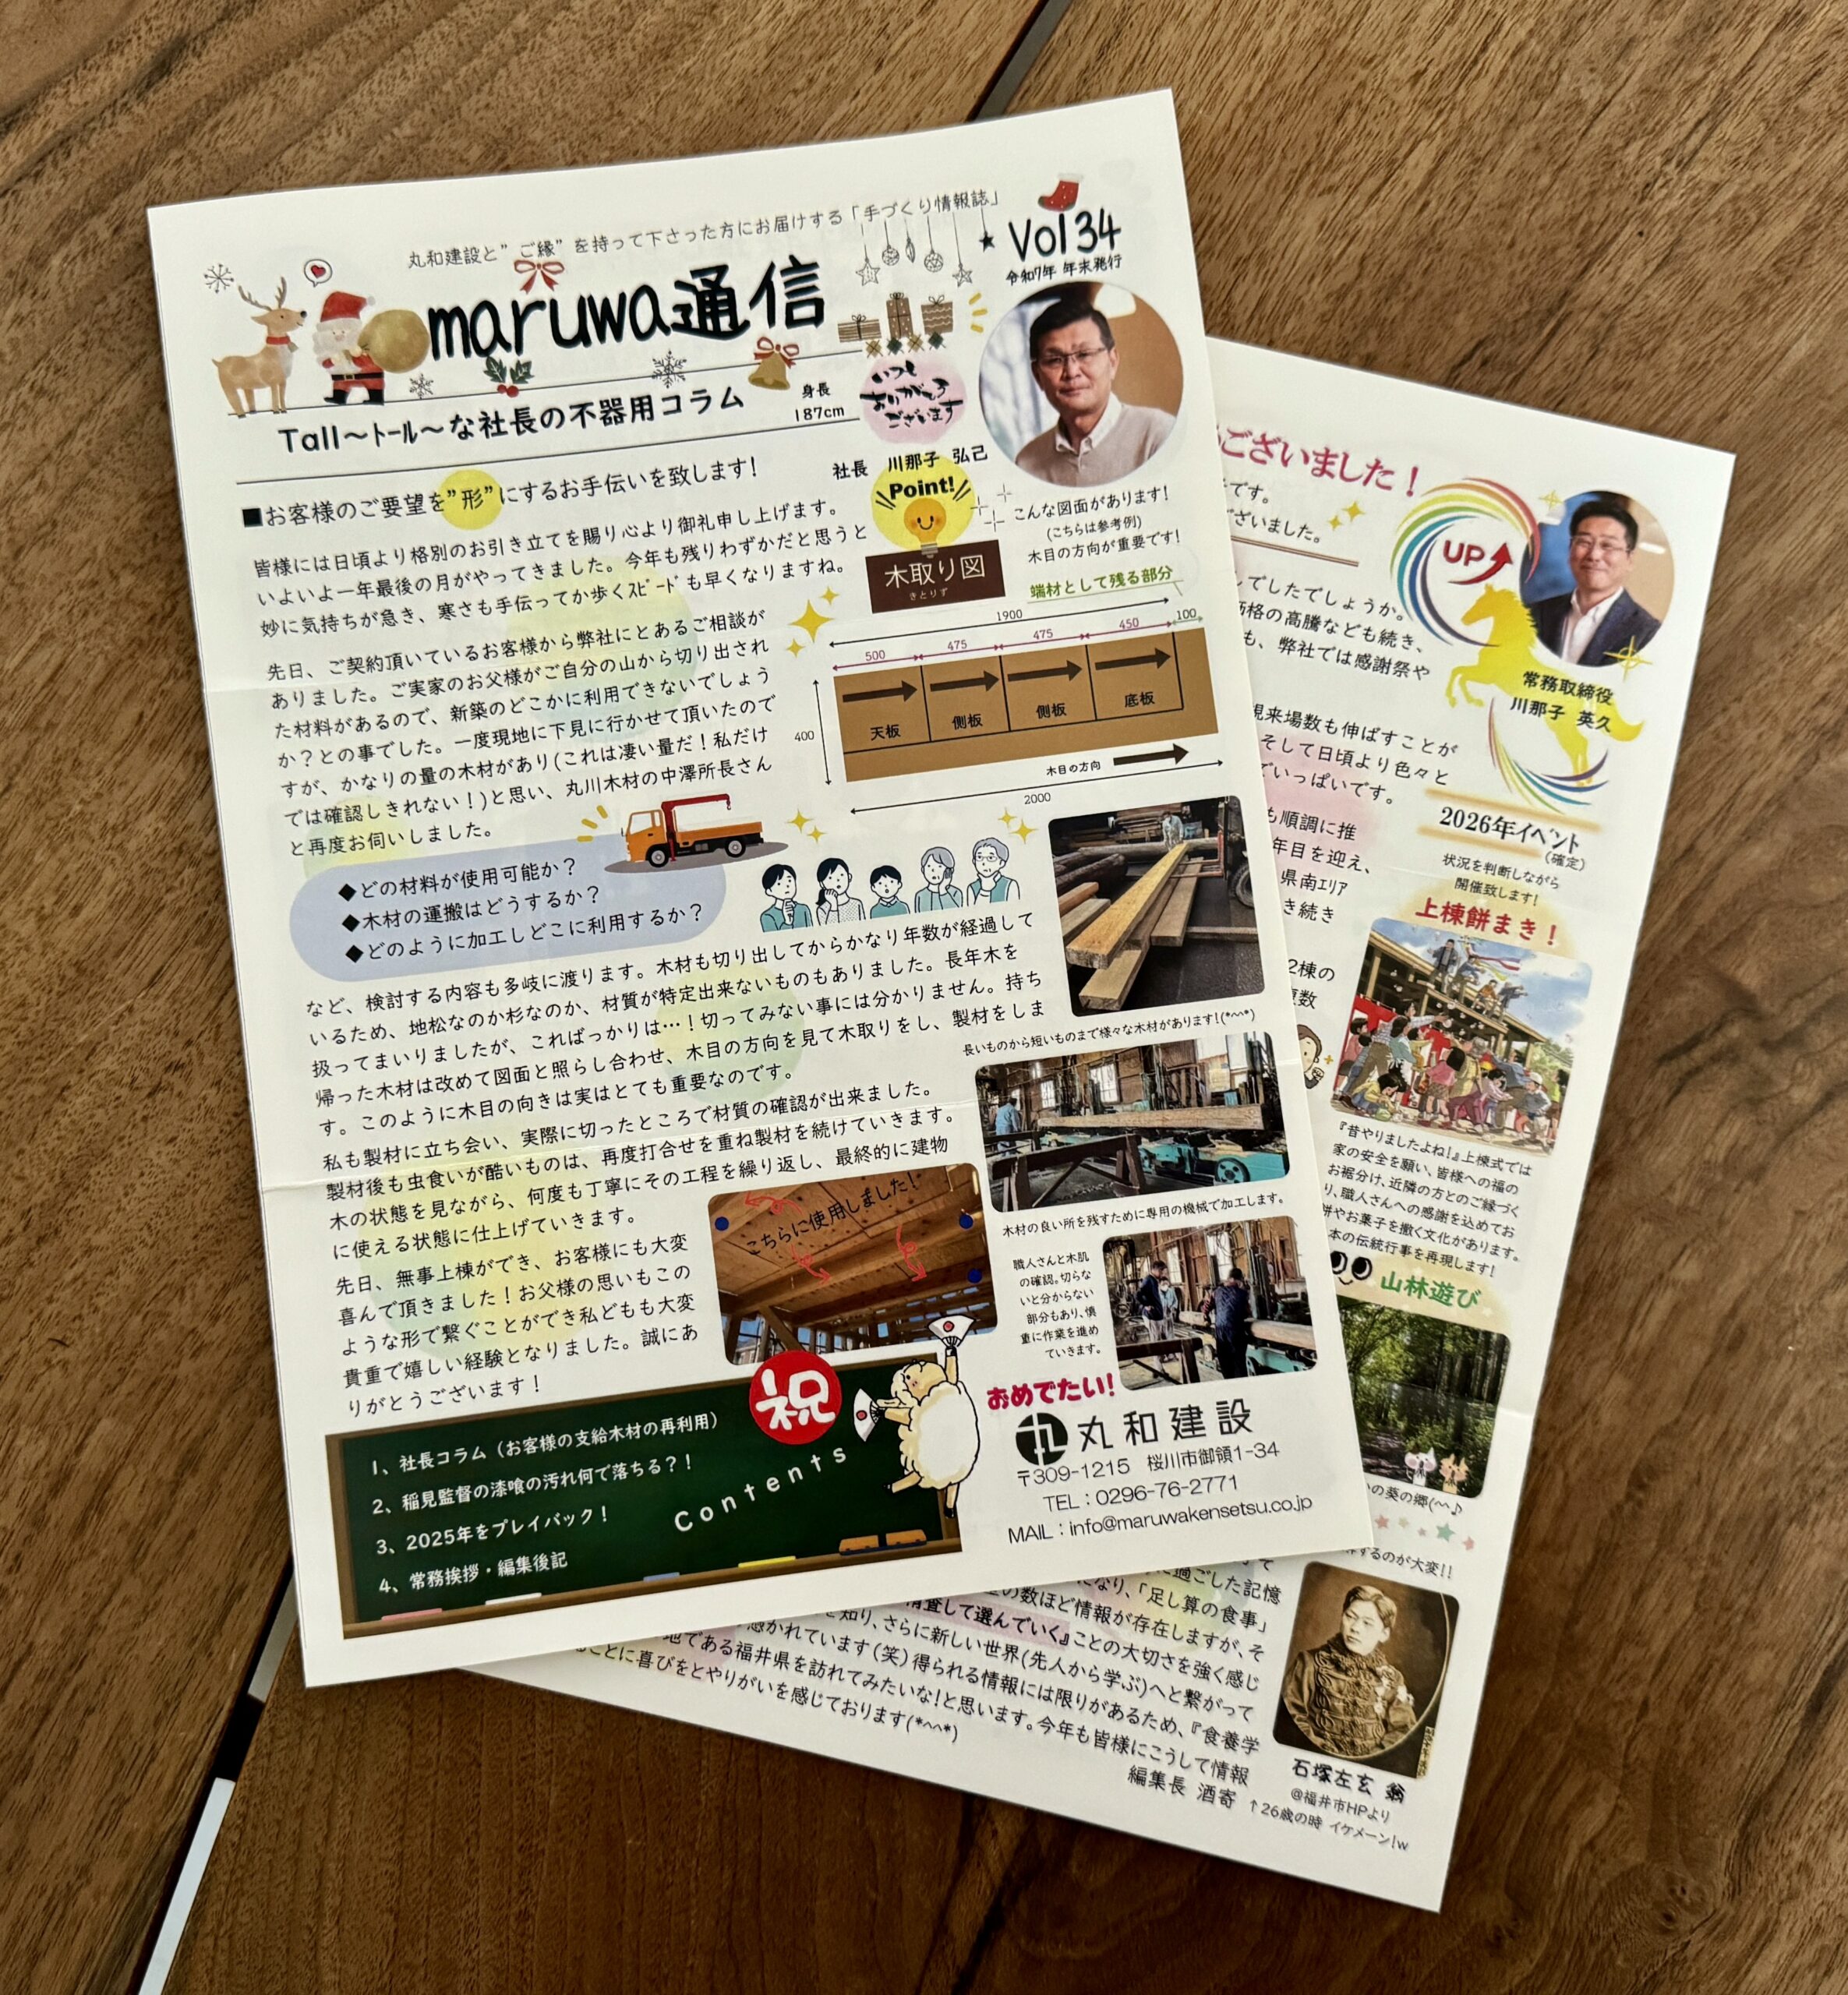 丸和建設と"ご縁"を持って下さった方にお届けする「手づくり情報誌」
maruwa通信
Vol34
令和7年 年末発行
Tall～ﾄｰﾙ～な社長の不器用コラム
身長
187cm
いつも
ありがとう
ございます
社長 川那子 弘己
■お客様のご要望を"形"にするお手伝いを致します!
皆様には日頃より格別のお引き立てを賜り心より御礼申し上げます。
いよいよ一年最後の月がやってきました。今年も残りわずかだと思うと
妙に気持ちが急き、寒さも手伝ってか歩くｽﾋﾟｰﾄﾞも早くなりますね。
先日、ご契約頂いているお客様から弊社にとあるご相談が
ありました。ご実家のお父様がご自分の山から切り出され
た材料があるので、新築のどこかに利用できないでしょう
か？との事でした。一度現地に下見に行かせて頂いたので
すが、かなりの量の木材があり(これは凄い量だ！私だけ
では確認しきれない！)と思い、丸川木材の中澤所長さん
と再度お伺いしました。
Point!
木取り図
きとりず
こんな図面があります!
(こちらは参考例)
木目の方向が重要です!
端材として残る部分
1900
500
475
475
450
100
400
天板
側板
側板
底板
木目の方向
2000
◆どの材料が使用可能か？
◆木材の運搬はどうするか？
◆どのように加工しどこに利用するか？
など、検討する内容も多岐に渡ります。木材も切り出してからかなり年数が経過して
いるため、地松なのか杉なのか、材質が特定出来ないものもありました。長年木を
扱ってまいりましたが、こればっかりは…！切ってみない事には分かりません。持ち
帰った木材は改めて図面と照らし合わせ、木目の方向を見て木取りをし、製材をしま
す。このように木目の向きは実はとても重要なのです。
私も製材に立ち会い、実際に切ったところで材質の確認が出来ました。
製材後も虫食いが酷いものは、再度打合せを重ね製材を続けていきます。
木の状態を見ながら、何度も丁寧にその工程を繰り返し、最終的に建物
に使える状態に仕上げていきます。
先日、無事上棟ができ、お客様にも大変
喜んで頂きました！お父様の思いもこの
ような形で繋ぐことができ私どもも大変
貴重で嬉しい経験となりました。誠にあ
りがとうございます！
長いものから短いものまで様々な木材があります!(*^^*)
木材の良い所を残すために専用の機械で加工します。
こちらに使用しました！
職人さんと木肌
の確認。切らな
いと分からない
部分もあり、慎
重に作業を進め
ていきます。
1、社長コラム（お客様の支給木材の再利用）
2、稲見監督の漆喰の汚れ何で落ちる？！
3、2025年をプレイバック！
4、常務挨拶・編集後記
Contents
祝
おめでたい!
丸和建設
〒309-1215 桜川市御領1-34
TEL：0296-76-2771
MAIL：info@maruwakensetsu.co.jp
ございました！
です。
ございました。
UP
常務取締役
川那子 英久
でしたでしょうか。
価格の高騰なども続き、
も、弊社では感謝祭や
現来場数も伸ばすことが
そして日頃より色々と
でいっぱいです。
も順調に推
年目を迎え、
県南ｴﾘｱ
き続き
2棟の
複数
2026年ｲﾍﾞﾝﾄ
(確定)
状況を判断しながら
開催致します!
上棟餅まき！
『昔やりましたよね!』上棟式では
家の安全を願い、皆様への福の
お裾分け、近隣の方とのご縁づく
り、職人さんへの感謝を込めてお
餅やお菓子を撒く文化があります。
本の伝統行事を再現します!
山林遊び
の葵の郷(^^♪
するのが大変!!
過ごした記憶
になり、「足し算の食事」
の数ほど情報が存在しますが、そ
精査して選んでいく』ことの大切さを強く感じ
知り、さらに新しい世界(先人から学ぶ)へと繋がって
惹かれています(笑)得られる情報には限りがあるため、『食養学
地である福井県を訪れてみたいな!と思います。今年も皆様にこうして情報
ことに喜びをとやりがいを感じております(*^^*)
編集長 酒寄
石塚左玄 翁
@福井市HPより
↑26歳の時 イケメーン!w